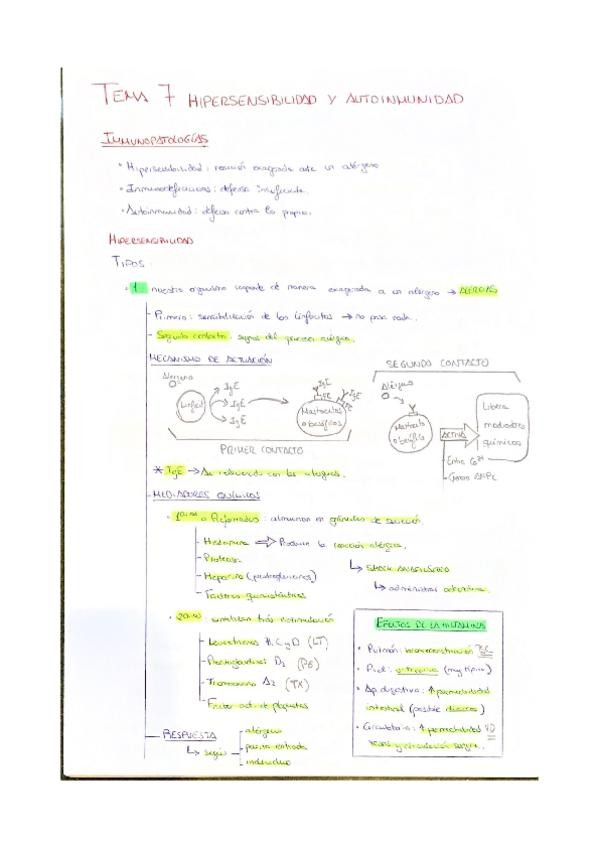 TEMA 7 HIPERSENSIBILIDAD Y AUTOINMUNIDAD
INMUNOPATOLOGÍAS
• Hipersensibilidad: reacción exagerada ante un alérgeno
• Inmunodeficiencias: defensa insuficiente.
• Autoinmunidad: defensa contra lo propio.
HIPERSENSIBILIDAD
TIPOS:
• 1 nuestro organismo responde de manera exagerada a un alérgeno → ALERGIAS
- Primero: sensibilización de los linfocitos → no pasa nada.
- Segundo contacto: signos del proceso alérgico.
MECANISMO DE ACTUACIÓN
SEGUNDO CONTACTO
Alérgeno
IgE
IgE
IgE
Linfocit
IgE
IgE
IgE
Mastocitos o basófilos
Alérgeno
Mastocito o basófilo
ACTIVA
Libera mediadores químicos
- Entra Ca2+
PRIMER CONTACTO
* IgE → Se relacionan con las alergias.
- MEDIADORES QUÍMICOS
• 1arios o Preformados: almacenan en gránulos de secreción.
- Histamina ⇒ Produce la reacción alérgica.
- Proteasas
↳ SHOCK ANAFILÁCTICO
- Heparina (proteoglicanos)
↳ administrar adrenalina.
- Factores quimiotácticos
• 2arios: sintetizan tras estimulación
- Leucotrienos B, C y D (LT)
- Prostaglandinas D2 (PG)
- Tromboxano A2 (TX)
- Factor activ. de plaquetas
EFECTOS DE LA HISTAMINA
• Pulmón: broncoconstricción
• Piel: urticaria (muy típico)
• Ap. digestivo: ↑ permeabilidad
intestinal (posible diarrea)
• Circulatorio: ↑ permeabilidad VD
- RESPUESTA
↳ según
- alérgeno
- puerta entrada
- individuo